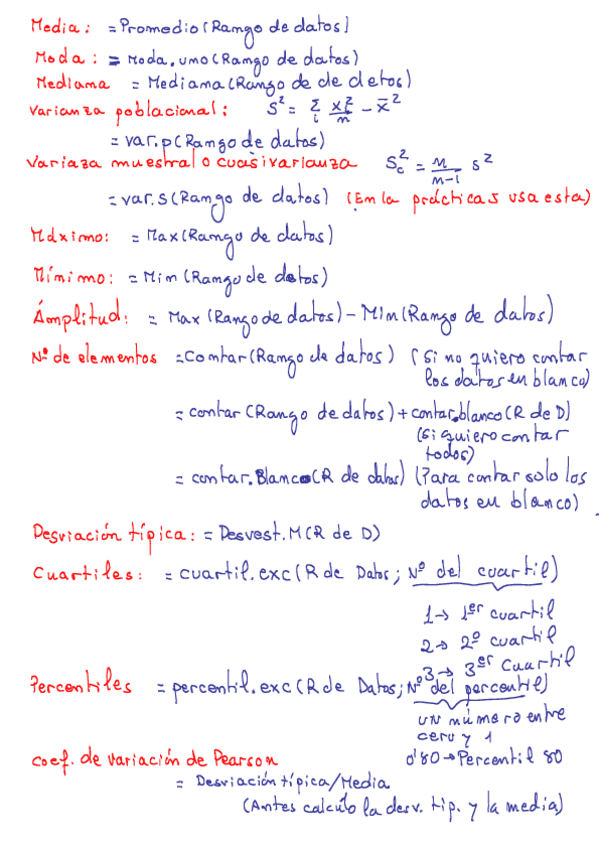 Media: =Promedio(Rango de datos)
Moda: = Moda.uno(Rango de datos)
Mediana = Mediana(Rango de de datos)
Varianza poblacional: S² = Σ_i x_i²/n - x̄²
= var.p(Rango de datos)
Variaza muestral o cuasivarianza S_c² = n/n-1 s²
= var.s(Rango de datos) (En la prácticas usa esta)
Máximo: = Max(Rango de datos)
Mínimo: = Min (Rango de datos)
Ámplitud: = Max (Rango de datos) - Min(Rango de datos)
Nº de elementos =Contar(Rango de datos) (Si no quiero contar
los datos en blanco)
= contar (Rango de datos)+contar.blanco(R de D)
(Si quiero contar
todos)
= contar.Blanco(R de datos) (Para contar solo los
datos en blanco)
Desviación típica: = Desvest.M(R de D)
Cuartiles: = cuartil.exc(R de Datos; Nº del cuartil)
1→ 1er cuartil
2→ 2º cuartil
3→ 3er Cuartil
Percentiles = percentil.exc(R de Datos; Nº del percentil)
un número entre
cero y 1
0'80→Percentil 80
coef. de variación de Pearson
= Desviación típica/Media
(Antes calculo la desv. tip. y la media)